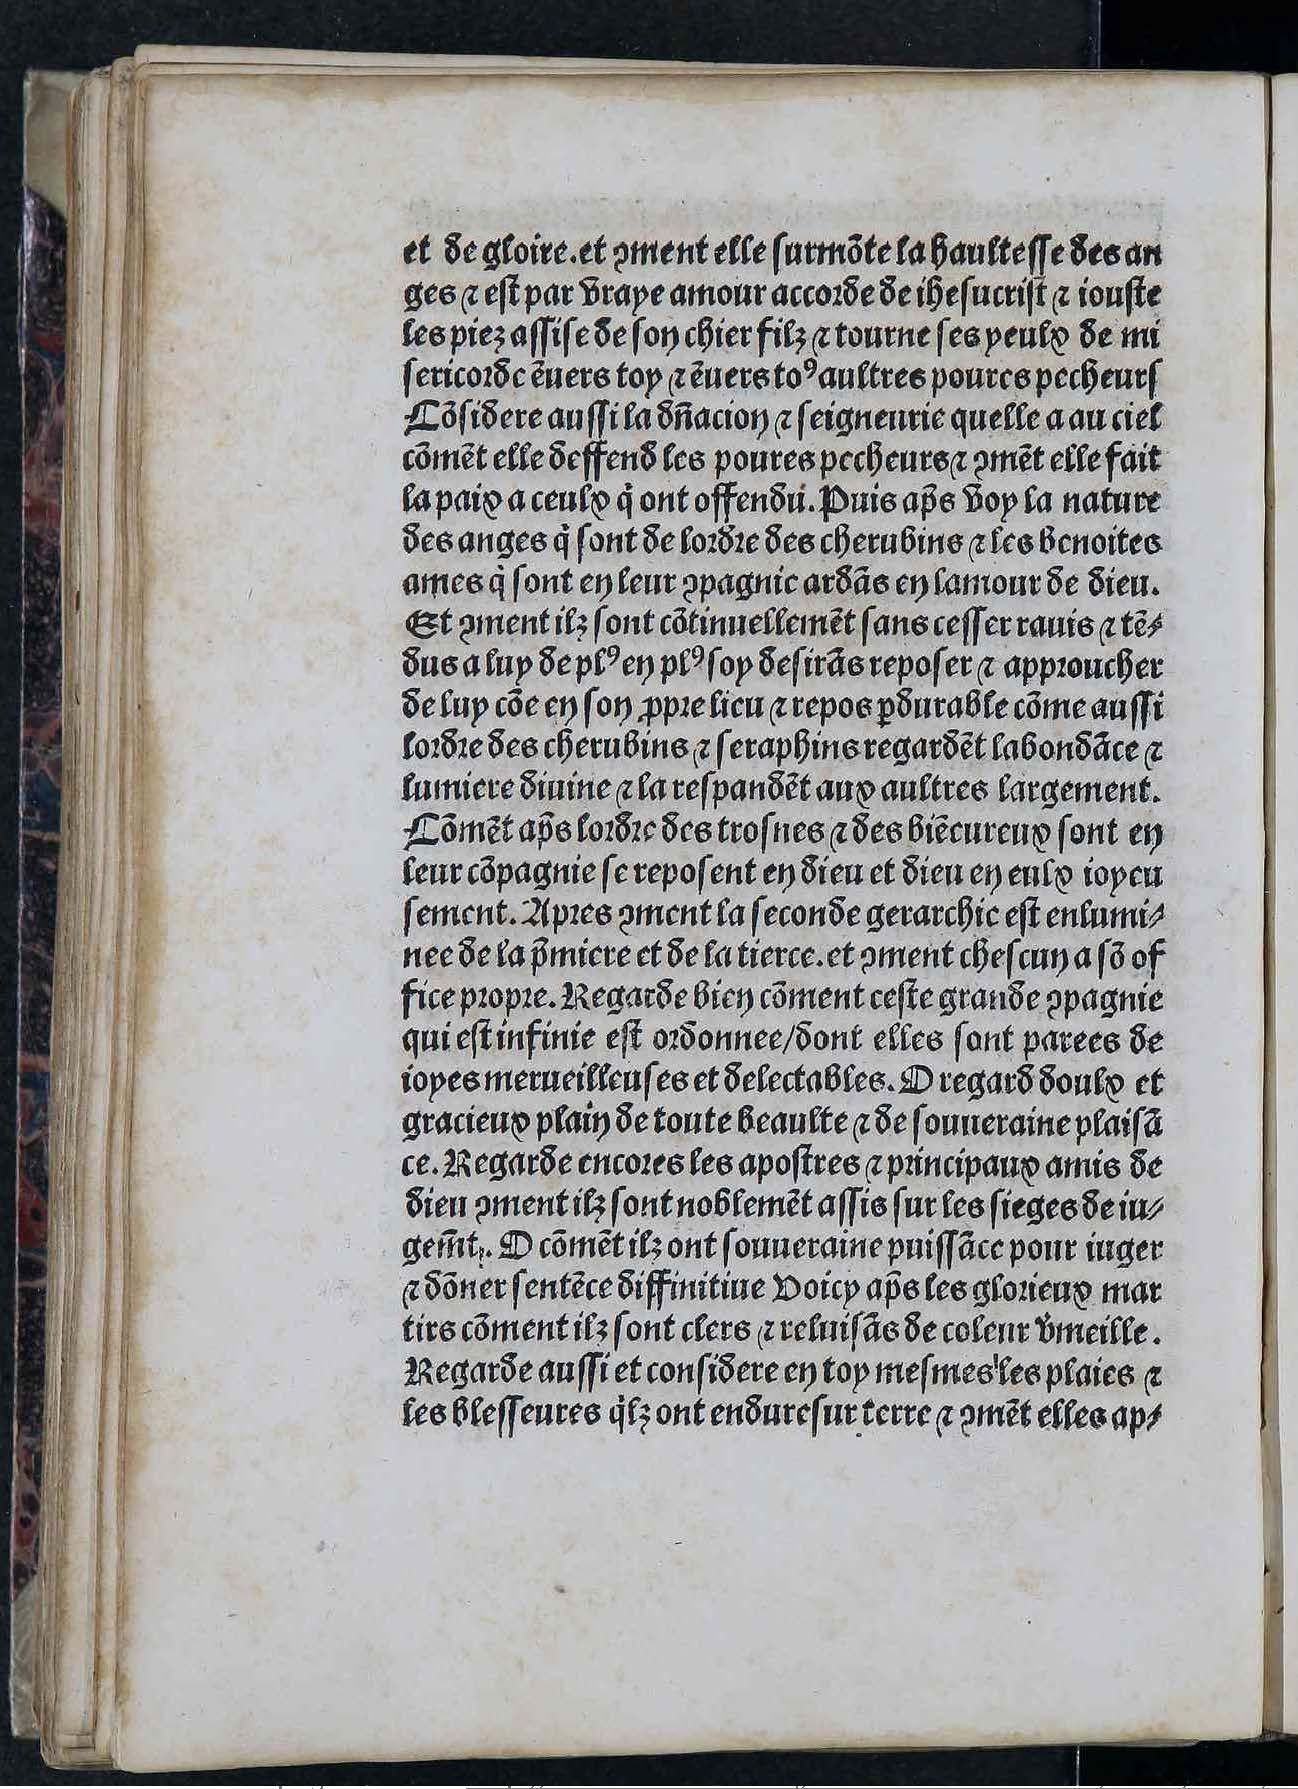 et de gloire.et ꝯment elle surmōte la haultesse des an
ges ⁊ est par vraye amour accorde de ihesucrist ⁊ iouste
les piez assise de son chier filz ⁊ tourne ses yeulx de mi
sericorde ēuers toy ⁊ ēuers toꝰ aultres poures pecheurs
Cōsidere aussi la dn̄acion ⁊ seigneurie quelle a au ciel
cōmēt elle deffend les poures pecheurs ⁊ ꝯmēt elle fait
la paix a ceulx q̇ ont offendu. Puis ap̄s voy la nature
des anges q̇ sont de lordre des cherubins ⁊ les benoites
ames q̇ sont en leur ꝯpagnie ardās en lamour de dieu.
Et ꝯment ilz sont cōtinuellemēt sans cesser rauis ⁊ tē⸗
dus a luy de plꝰ en plꝰ soy desirās reposer ⁊ approucher
de luy cōe en son ꝓpre lieu ⁊ repos ꝑdurable cōme aussi
lordre des cherubins ⁊ seraphins regardēt labondāce ⁊
lumiere diuine ⁊ la respandēt aux aultres largement.
Cōmēt ap̄s lordre des trosnes ⁊ des biēeureux sont en
leur cōpagnie se reposent en dieu et dieu en eulx ioyeu
sement. Apres ꝯment la seconde gerarchie est enlumi⸗
nee de la p̄miere et de la tierce. et ꝯment chescun a sō of
fice propre. Regarde bien cōment ceste grande ꝯpagnie
qui est infinie est ordonnee/dont elles sont parees de
ioyes merueilleuses et delectables. O regard doulx et
gracieux plain de toute beaulte ⁊ de souueraine plaisā
ce. Regarde encores les apostres ⁊ principaux amis de
dieu ꝯment ilz sont noblemēt assis sur les sieges de iu⸗
gem̄t. O cōmēt ilz ont souueraine puissāce pour iuger
⁊ dōner sentēce diffinitiue Voicy ap̄s les glorieux mar
tirs cōment ilz sont clers ⁊ reluisās de coleur v̄meille.
Regarde aussi et considere en toy mesmes les plaies ⁊
les blesseures q̇lz ont endure sur terre ⁊ ꝯmēt elles ap⸗